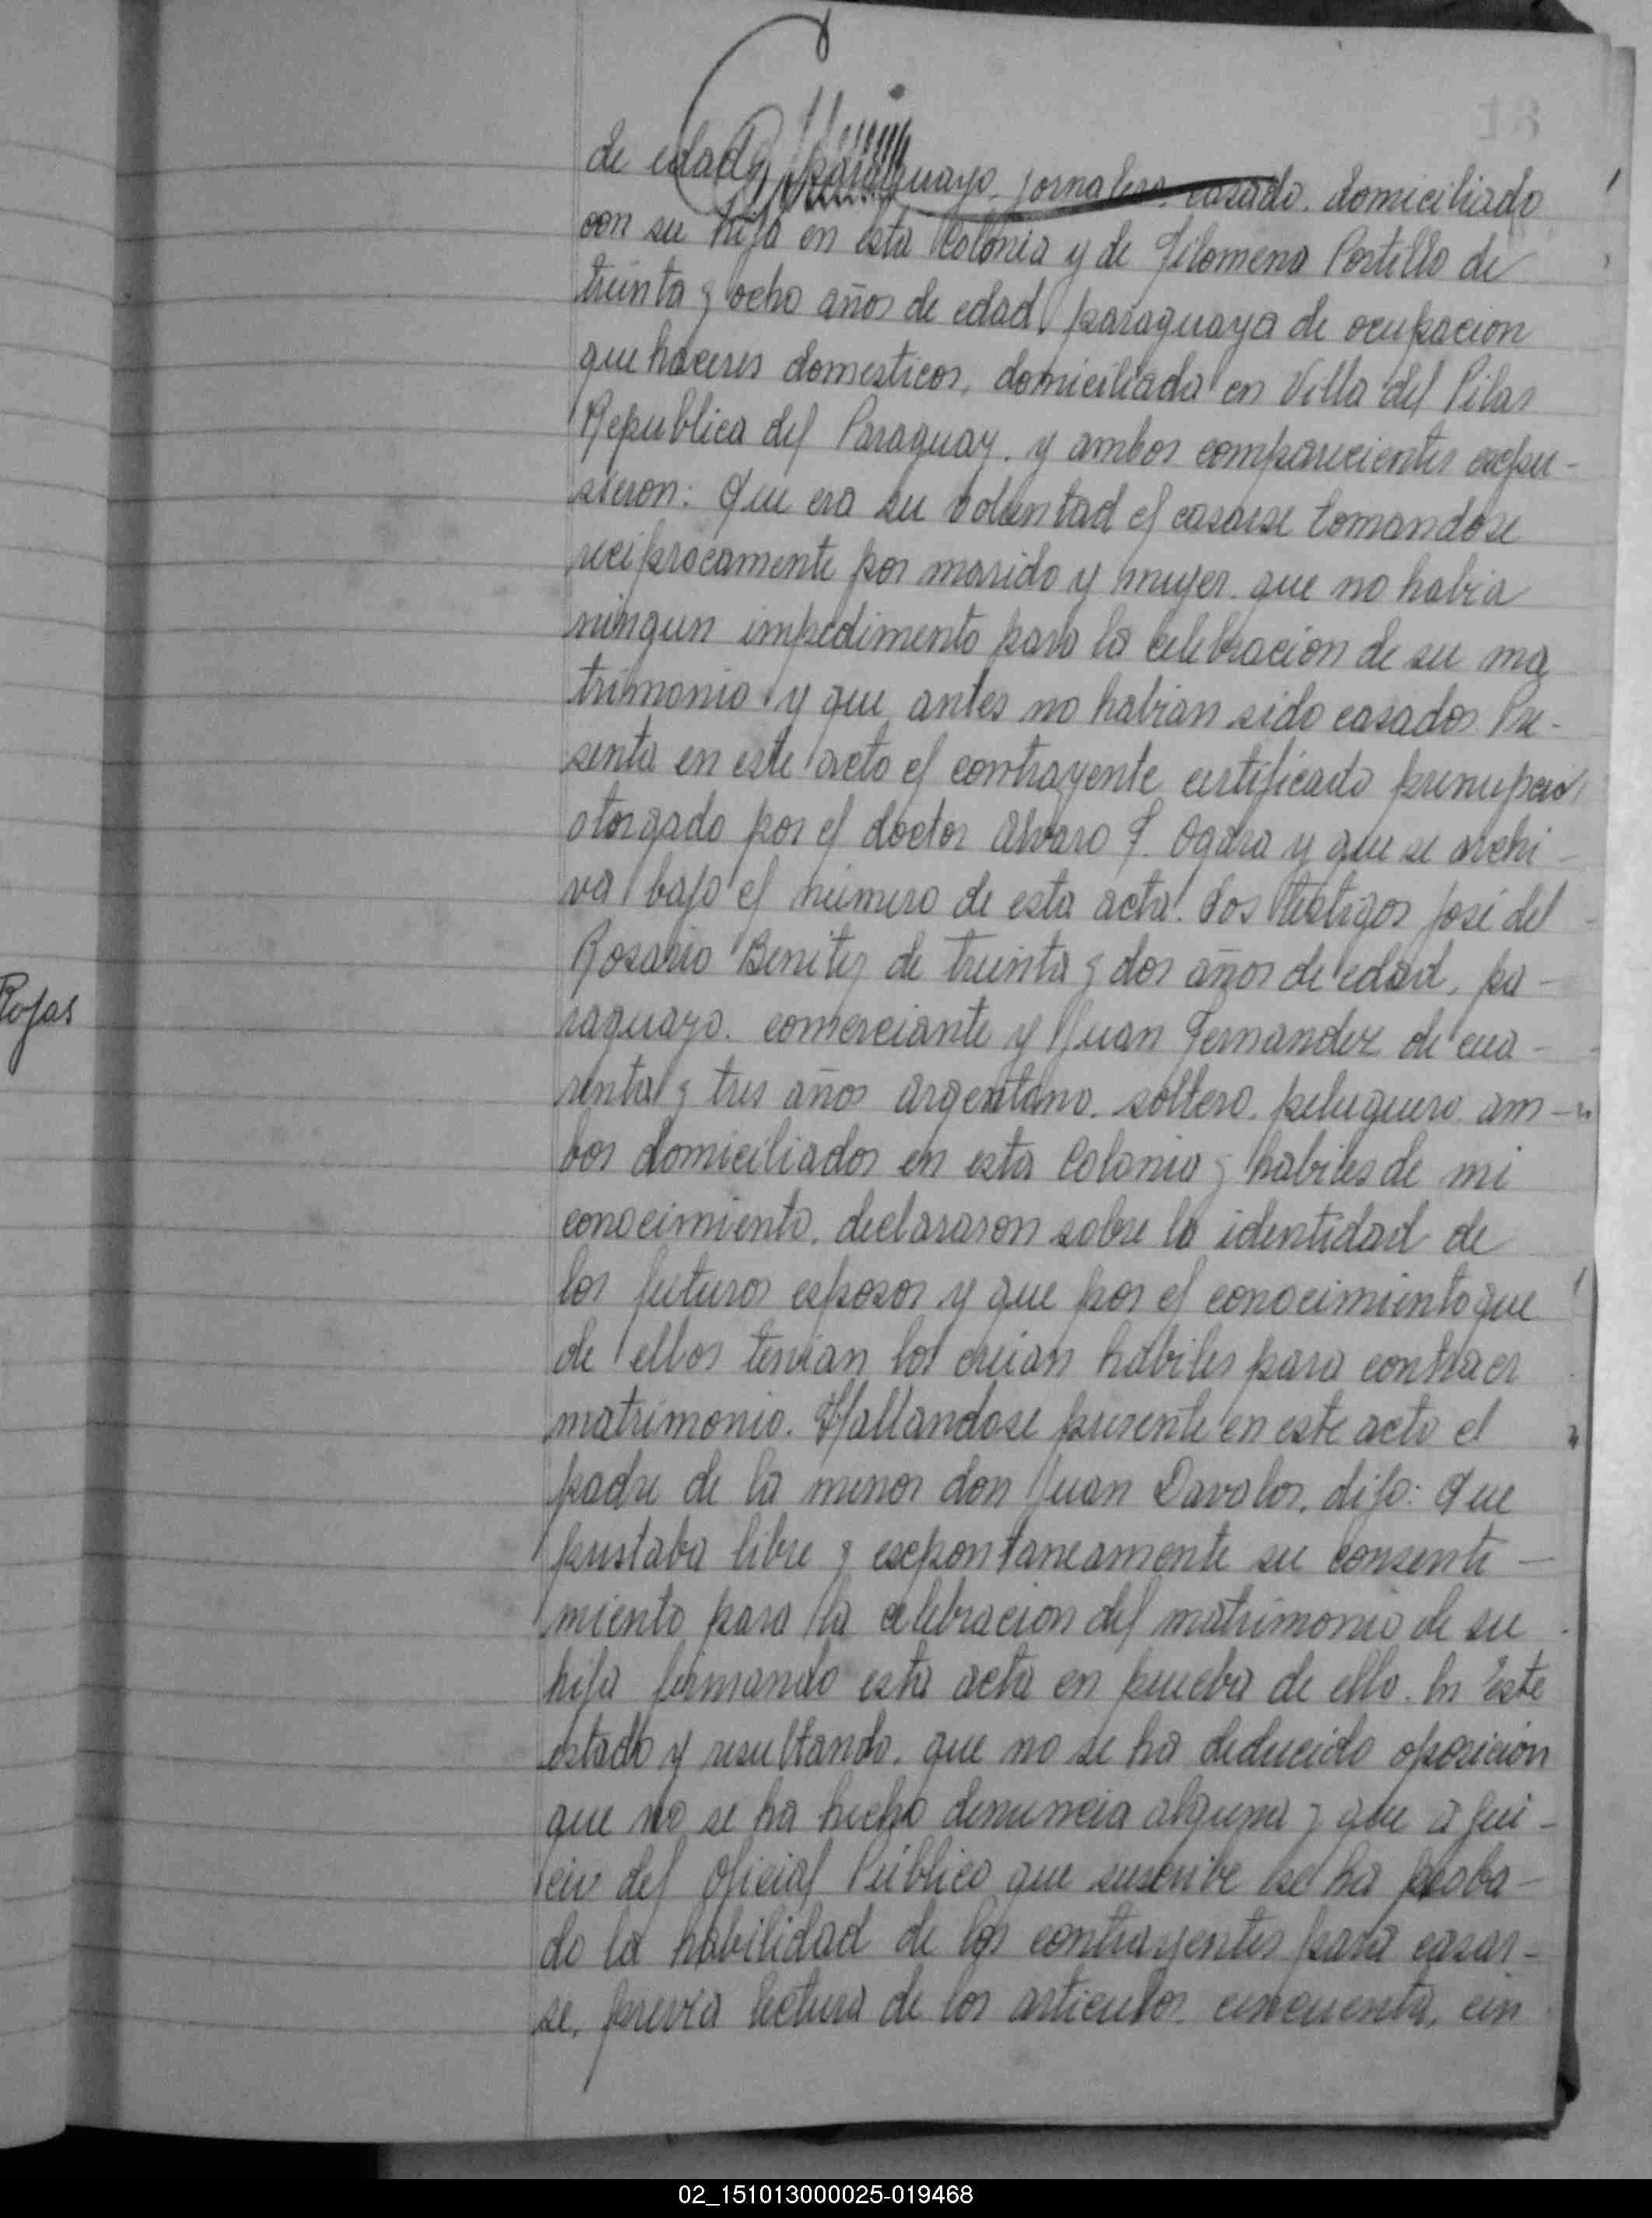 de edad, paraguayo. jornalero. casado. domiciliado
con su hija en esta Colonia y de Filomena Portillo de
treinta y ocho años de edad, paraguaya de ocupacion
quehaceres domesticos, domiciliada en Villa del Pilar
Republica del Paraguay. y ambos comparecientes expu-
sieron: Que era su voluntad el casarse tomandose
reciprocamente por marido y mujer. que no habia
ningun impedimento para la celebracion de su ma
trimonio y que antes no habian sido casados. Pre-
senta en este acto el contrayente certificado prenupcial
otorgado por el doctor Alvaro F. Ogara y que se archi-
va bajo el número de esta acta. Los testigos José del
Rosario Benitez de treinta y dos años de edad, pa-
Rojas
raguayo. comerciante y Juan Fernandez de cua-
renta y tres años argentino. soltero. peluquero. am-
bos domiciliados en esta Colonia y habiles de mi
conocimiento. declararon sobre la identidad de
los futuros esposos y que por el conocimiento que
de ellos tenian los creian habiles para contraer
matrimonio. Hallandose presente en este acto el
padre de la menor don Juan Davalos, dijo: Que
prestaba libre y esepontaneamente su consenti-
miento para la celebracion del matrimonio de su
hija firmando esta acta en prueba de ello. En este
estado y resultando. que no se ha deducido oposicion
que no se ha hecho denuncia alguna y que a jui-
cio del Oficial Público que suscribe se ha proba-
do la habilidad de los contrayentes para casar-
se, previa lectura de los articulos. cincuenta, cin
02_151013000025-019468